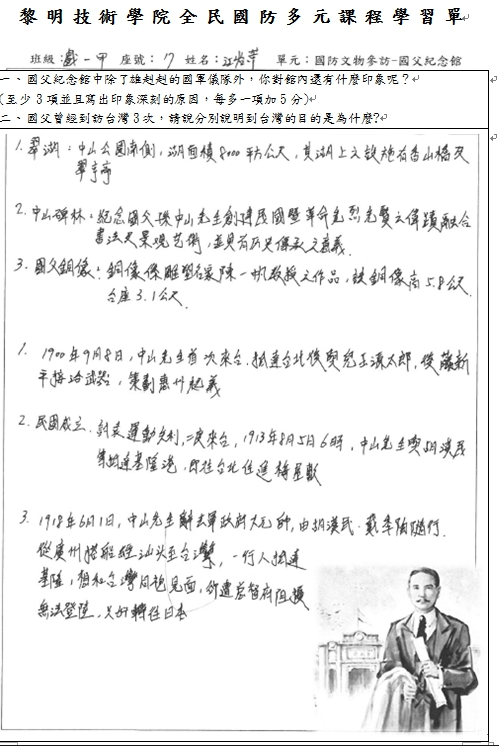 黎明技術學院全民國防多元課程學習單
班級:戲一甲 座號:17 姓名:江 單元:國防文物參訪-國父紀念館
一、國父紀念館中除了雄赳赳的國軍儀隊外,你對館內還有什麼印象呢?
(至少3項並且寫出印象深刻的原因,每多一項加5分)
二、國父曾經到訪台灣3次,請說分別說明到台灣的目的是為什麼?
1. 翠湖:中山公園南側,湖面積8000平方公尺,其湖上之設施有香山橋及
翠亨亭
2. 中山碑林:紀念國父孫中山先生創建民國暨革命先烈先賢之偉蹟融合
書法史景觀藝術,並具有历史傳承之意義.
3. 國父銅像:銅像係雕塑名家陳一帆教授之作品,該銅像高5.8公尺
台座3.1公尺.
1. 1900年9月8日,中山先生首次來台.抵達台北後與兒玉源太郎,後藤新
平接洽武器,策劃惠州起義
2. 民國成立.討袁運動失利,二度來台,1913年8月5日6時,中山先生與胡漢民
等抵達基隆港,即往台北住進梅屋敷
3. 1918年6月1日,中山先生辭去軍政府大元帥,由胡漢民.戴季陶隨行.
從廣州搭船經汕头至台灣,一行人抵達
基隆,想和台灣同胞見面,卻遭总督府阻擾
無法登陸.只好轉往日本